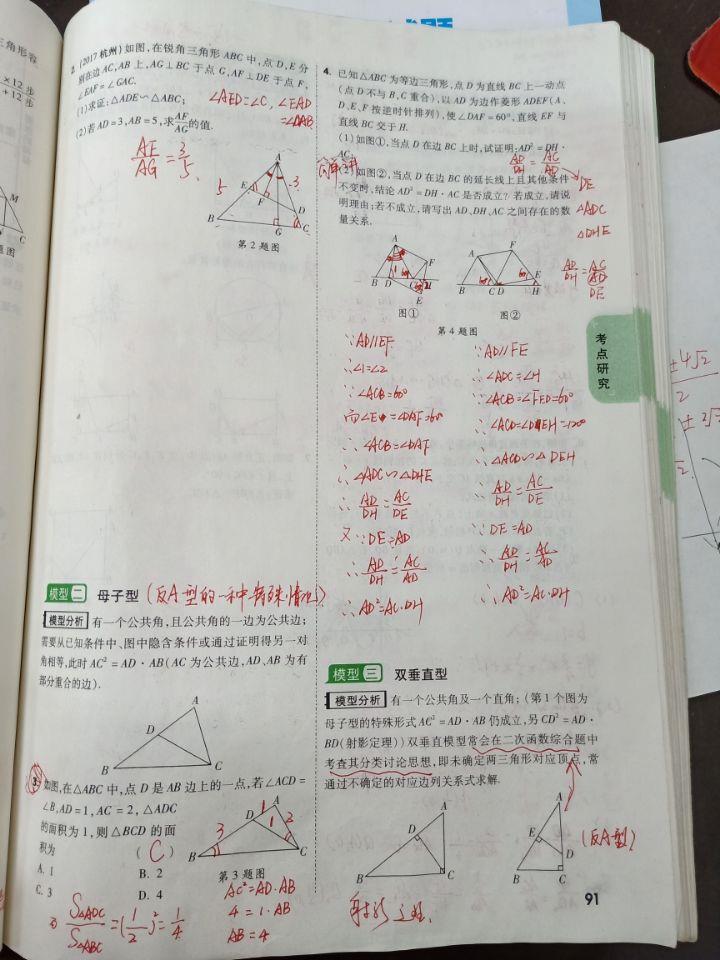 三角形存
×12 步
+12 步
M
C
题图
2. (2017 杭州) 如图,在锐角三角形 ABC 中,点 D,E 分
别在边 AC,AB 上,AG⊥BC 于点 G,AF⊥DE 于点 F,
∠EAF=∠GAC.
(1)求证:△ADE∽△ABC;
∠AED=∠C, ∠EAD
=∠DAB
(2)若 AD=3,AB=5,求AF/AG的值.
AF/AG=3/5.
A
5
3
E
F
D
B
G
C
第 2 题图
模型二 母子型 (反A型的一种特殊情况)
模型分析 有一个公共角,且公共角的一边为公共边;
需要从已知条件中、图中隐含条件或通过证明得另一对
角相等,此时 AC²=AD·AB(AC 为公共边,AD、AB 为有
部分重合的边).
A
D
B
C
3. 如图,在△ABC 中,点 D 是 AB 边上的一点,若∠ACD=
∠B,AD=1,AC=2,△ADC
的面积为 1,则△BCD 的面
积为 ( C )
A. 1 B. 2
C. 3 D. 4
A
1
D
1
2
3
B
C
第 3 题图
S△ADC/S△ABC=(1/2)²=1/4
AC²=AD·AB
4=1·AB
AB=4
4. 已知△ABC 为等边三角形,点 D 为直线 BC 上一动点
(点 D 不与 B、C 重合),以 AD 为边作菱形 ADEF(A、
D、E、F 按逆时针排列),使∠DAF=60°,直线 EF 与
直线 BC 交于 H.
(1)如图①,当点 D 在边 BC 上时,试证明:AD²=DH·
AC.
AD/DH=AC/AD
DE
(2)如图②,当点 D 在边 BC 的延长线上且其他条件
不变时,结论 AD²=DH·AC 是否成立?若成立,请说
明理由;若不成立,请写出 AD、DH、AC 之间存在的数
量关系.
△ADC
△DHE
AD/DH=AC/AD
DE
A
F
B
D
C
H
E
图①
A
F
B
C
D
E
H
图②
第 4 题图
∵AD//EF
∴∠1=∠2
∵∠ACB=60°
而∠E=∠DAF=60°
∴∠ACB=∠DAF
∴△ADC∽△DHE
∴AD/DH=AC/DE
又∵DE=AD
∴AD/DH=AC/AD
∴AD²=AC·DH
∵AD//FE
∴∠ADC=∠H
∵∠ACB=∠FED=60°
∴∠ACD=∠DEH=120°
∴△ACD∽△DEH
∴AD/DH=AC/DE
∵DE=AD
∴AD/DH=AC/AD
∴AD²=AC·DH
模型三 双垂直型
模型分析 有一个公共角及一个直角;(第 1 个图为
母子型的特殊形式 AC²=AD·AB 仍成立,另 CD²=AD·
BD(射影定理))双垂直模型常会在二次函数综合题中
考查其分类讨论思想,即未确定两三角形对应顶点,常
通过不确定的对应边列关系式求解.
A
D
B
C
射影定理.
A
E
D
B
C
(反A型)
考点研究
91
±4√2
2